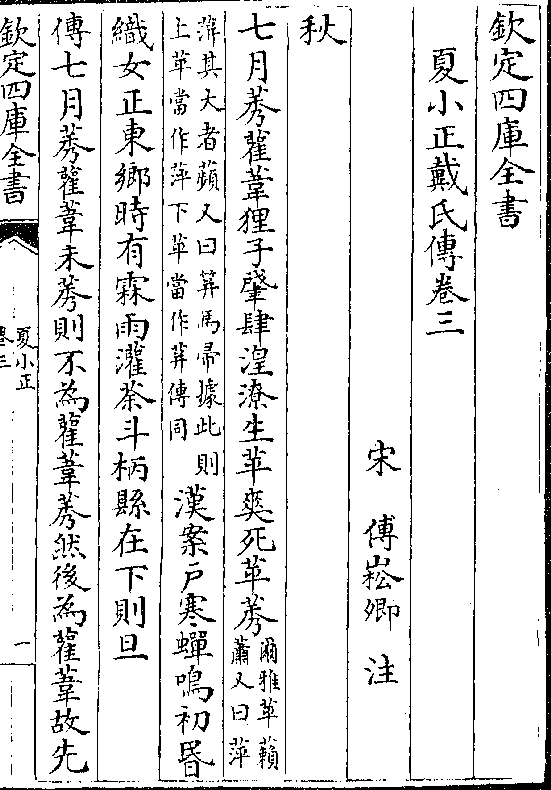 欽定四庫全書
夏小正戴氏傳卷三
宋 傅崧卿 注
秋
七月莠雚葦狸子肇肆湟潦生苹爽死苹莠
爾雅苹藾
蕭又曰萍
蓱其大者蘋又曰荓馬帚據此則
上苹當作萍下苹當作荓傳同
漢案戶寒蟬鳴初昬
織女正東鄉時有霖雨灌荼斗柄縣在下則旦
傳七月莠雚葦未莠則不為雚葦莠然後為雚葦故先
欽定四庫全書
夏小正
卷三
一